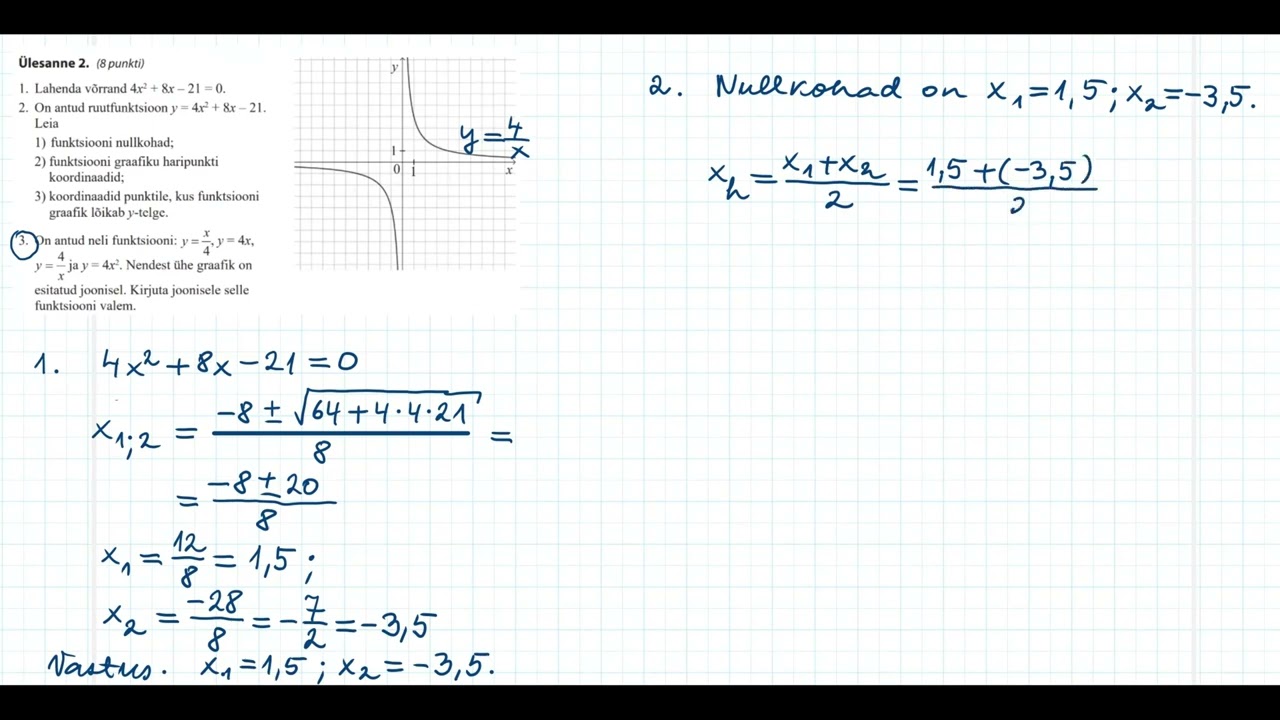 Ülesanne 2. (8 punkti)
1. Lahenda võrrand 4x² + 8x – 21 = 0.
2. On antud ruutfunktsioon y = 4x² + 8x – 21.
Leia
1) funktsiooni nullkohad;
2) funktsiooni graafiku haripunkti
koordinaadid;
3) koordinaadid punktile, kus funktsiooni
graafik lõikab y-telge.
3. On antud neli funktsiooni: y = x/4, y = 4x,
y = 4/x ja y = 4x². Nendest ühe graafik on
esitatud joonisel. Kirjuta joonisele selle
funktsiooni valem.
y
1
0 1 x
y = 4/x
1. 4x² + 8x – 21 = 0
x₁;₂ = (–8 ± √(64 + 4·4·21))/8 =
= (–8 ± 20)/8
x₁ = 12/8 = 1,5 ;
x₂ = –28/8 = –7/2 = –3,5
Vastus. x₁ = 1,5 ; x₂ = –3,5.
2. Nullkohad on x₁ = 1,5 ; x₂ = –3,5.
xₕ = (x₁ + x₂)/2 = (1,5 + (–3,5))/2